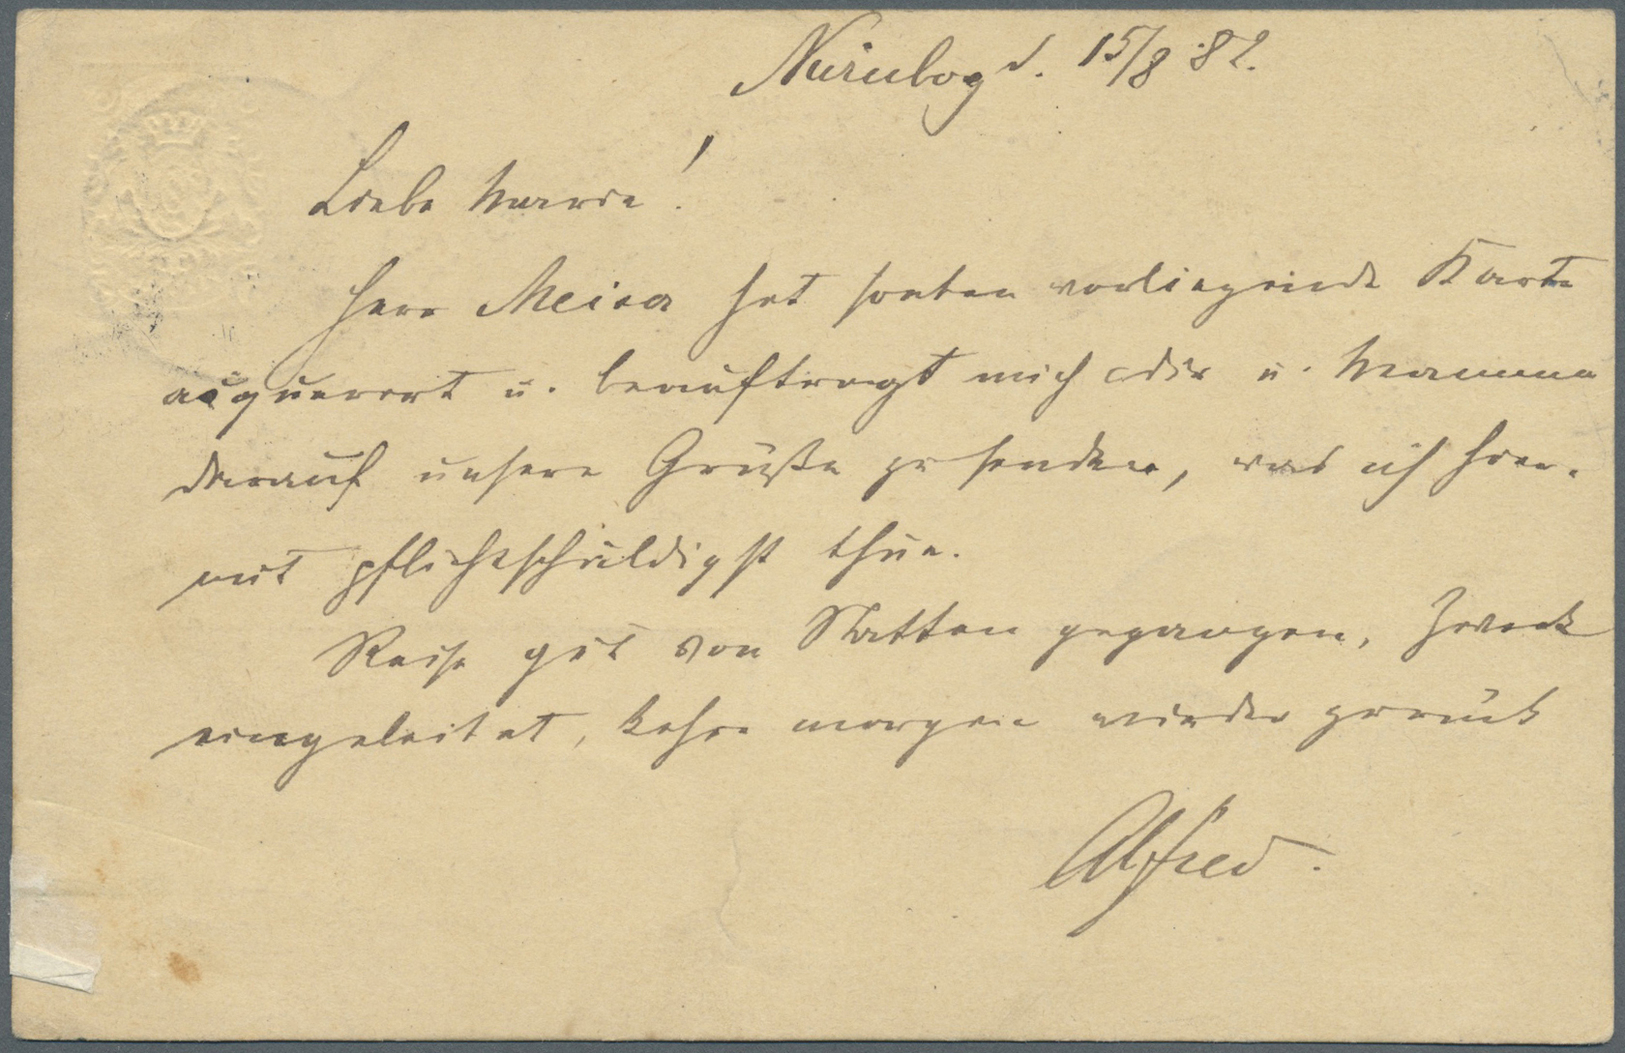 Nürnbg d. 15/8 82.
Liebe Marie!
Herr Meiea hat soeben vorliegende Karte
acquerort u. beauftragt mich dir u. Mamma
darauf unsere Grüße zu senden, was ich hier-
mit pflichtschuldigst thue.
Reise gut von Statten gegangen, Zweck
eingeleitet, kehre morgen wieder zurück
Alfred.